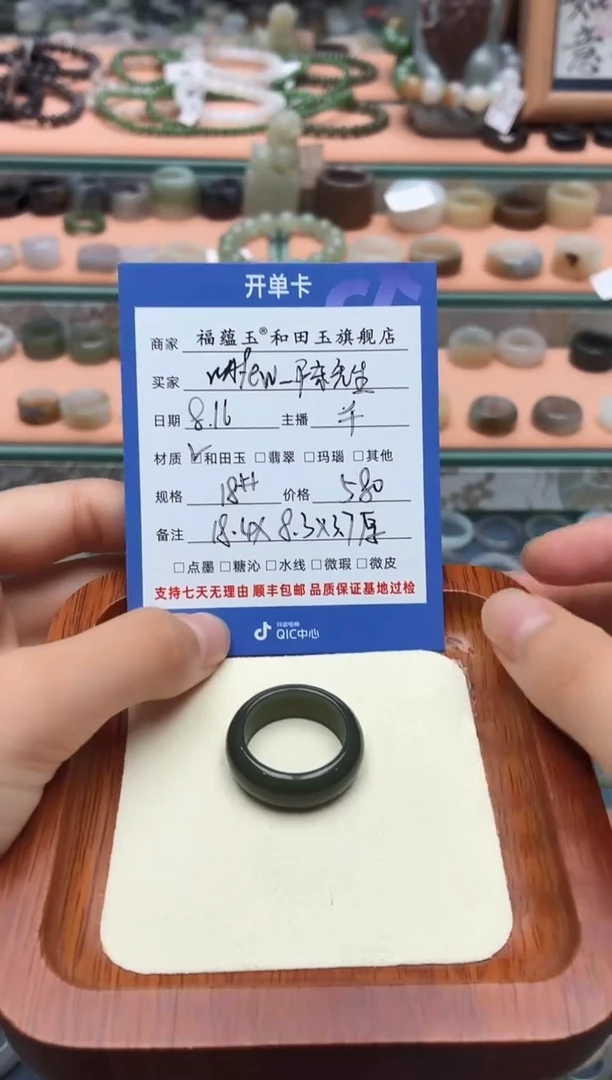 如意
开单卡
商家 福蕴玉®和田玉旗舰店
买家
日期 8.16 主播
材质 ☑和田玉 □翡翠 □玛瑙 □其他
规格 18# 价格 580
备注 18.4×8.3×3.7厚
□点墨 □糖沁 □水线 □微瑕 □微皮
支持七天无理由 顺丰包邮 品质保证基地过检
抖音电商
QIC中心